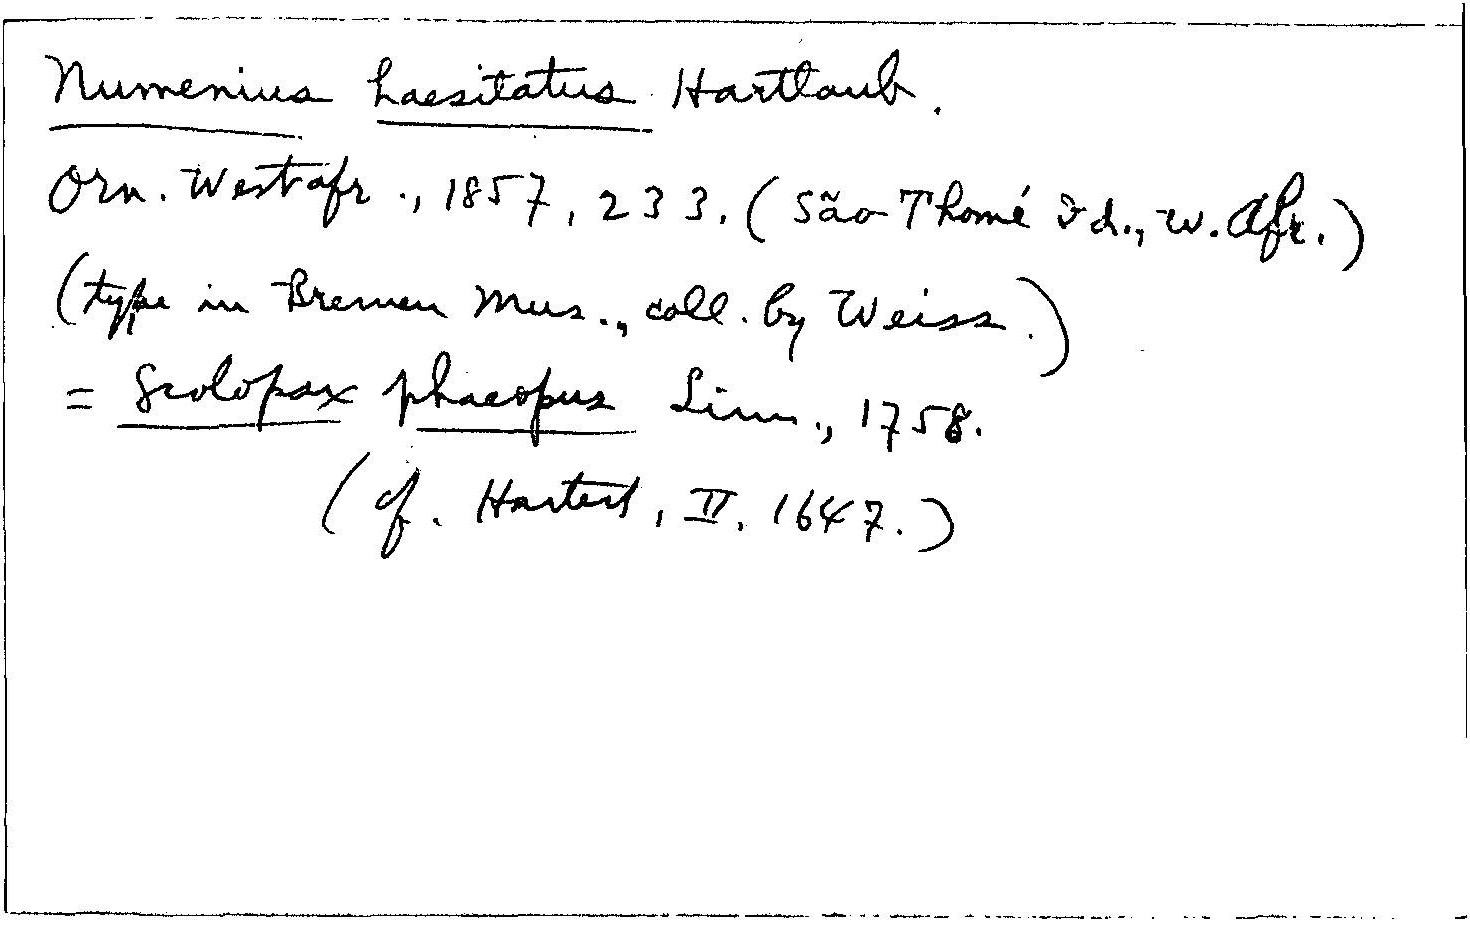 Numenius haesitatus Hartlaub.
Orn. Westafr., 1857, 233. (São Thomé Id., W. Afr.)
(type in Bremen Mus., coll. by Weiss.)
= Scolopax phaeopus Linn., 1758.
(cf. Hartert, II, 1647.)